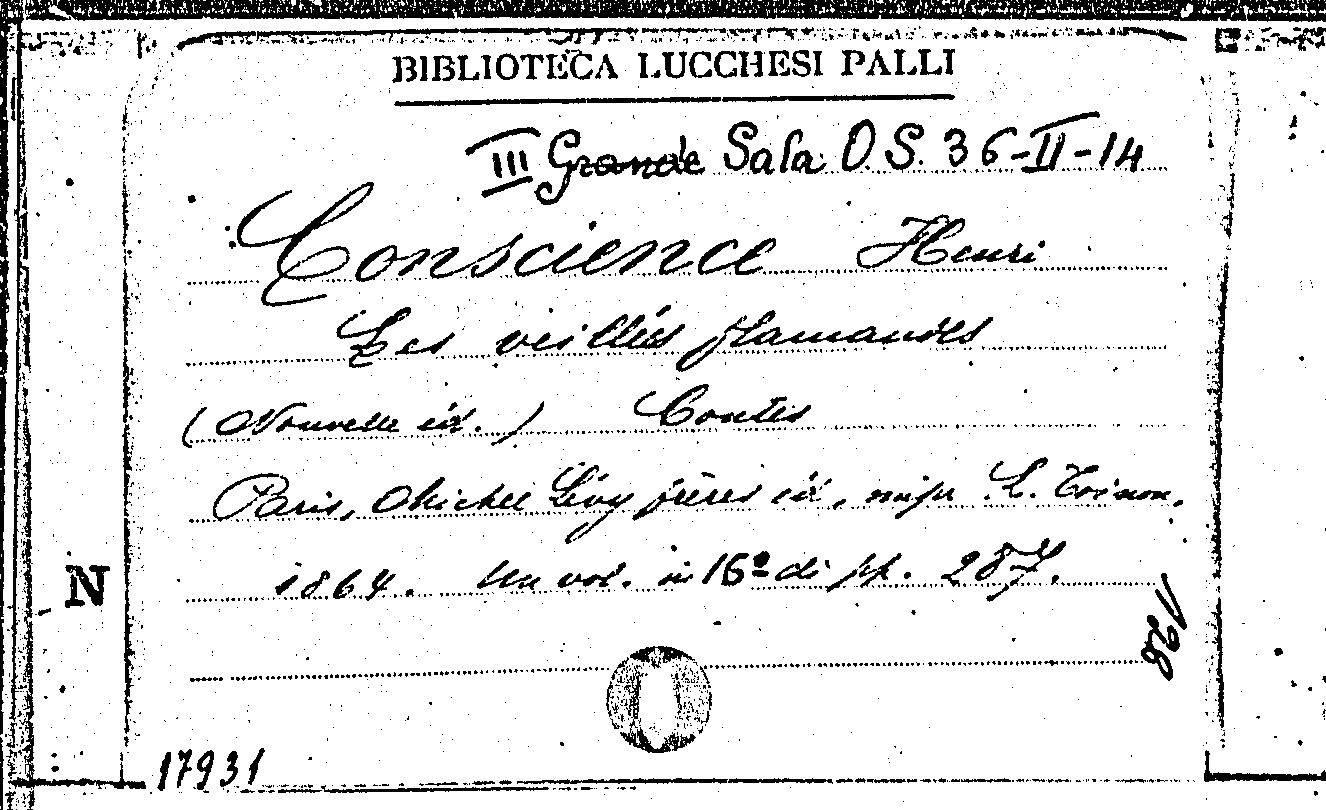 BIBLIOTECA LUCCHESI PALLI
III Grande Sala O.S. 36-II-14
Conscience Henri
Les veillées flamandes
(Nouvelle éd.) Contes
Paris, Michel Lévy frères éd., impr. L. Toinon,
1864. Un vol. in 16º di pp. 287.
N
128
17931